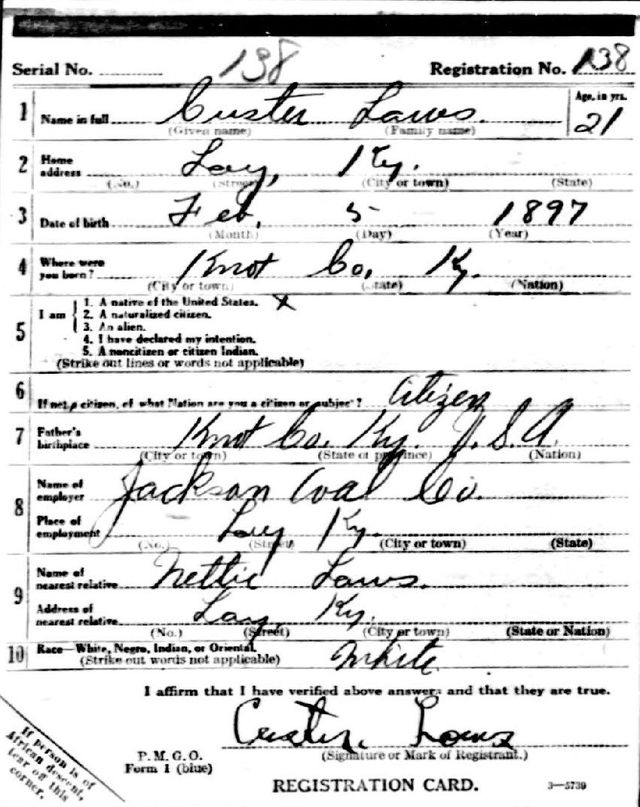 Serial No. 138 Registration No. 138
1 Name in full Custer Laws. Age, in yrs. 21
(Given name) (Family name)
2 Home address Lay, Ky.
(No.) (Street) (City or town) (State)
3 Date of birth Feb. 5 1897
(Month) (Day) (Year)
4 Where were you born? Knot Co. Ky.
(City or town) (State) (Nation)
5 I am
1. A native of the United States. X
2. A naturalized citizen.
3. An alien.
4. I have declared my intention.
5. A noncitizen or citizen Indian.
(Strike out lines or words not applicable)
6 If not a citizen, of what Nation are you a citizen or subject? Citizen
7 Father's birthplace Knot Co. Ky. U.S.A
(City or town) (State or province) (Nation)
8 Name of employer Jackson Coal Co.
Place of employment Lay Ky.
(No.) (Street) (City or town) (State)
9 Name of nearest relative Nettie Laws.
Address of nearest relative Lay, Ky.
(No.) (Street) (City or town) (State or Nation)
10 Race—White, Negro, Indian, or Oriental. White
(Strike out words not applicable)
I affirm that I have verified above answers and that they are true.
Custer Laws
P. M. G. O. (Signature or Mark of Registrant.)
Form 1 (blue)
REGISTRATION CARD. 3—5739
If person is of
African descent,
tear off this
corner.